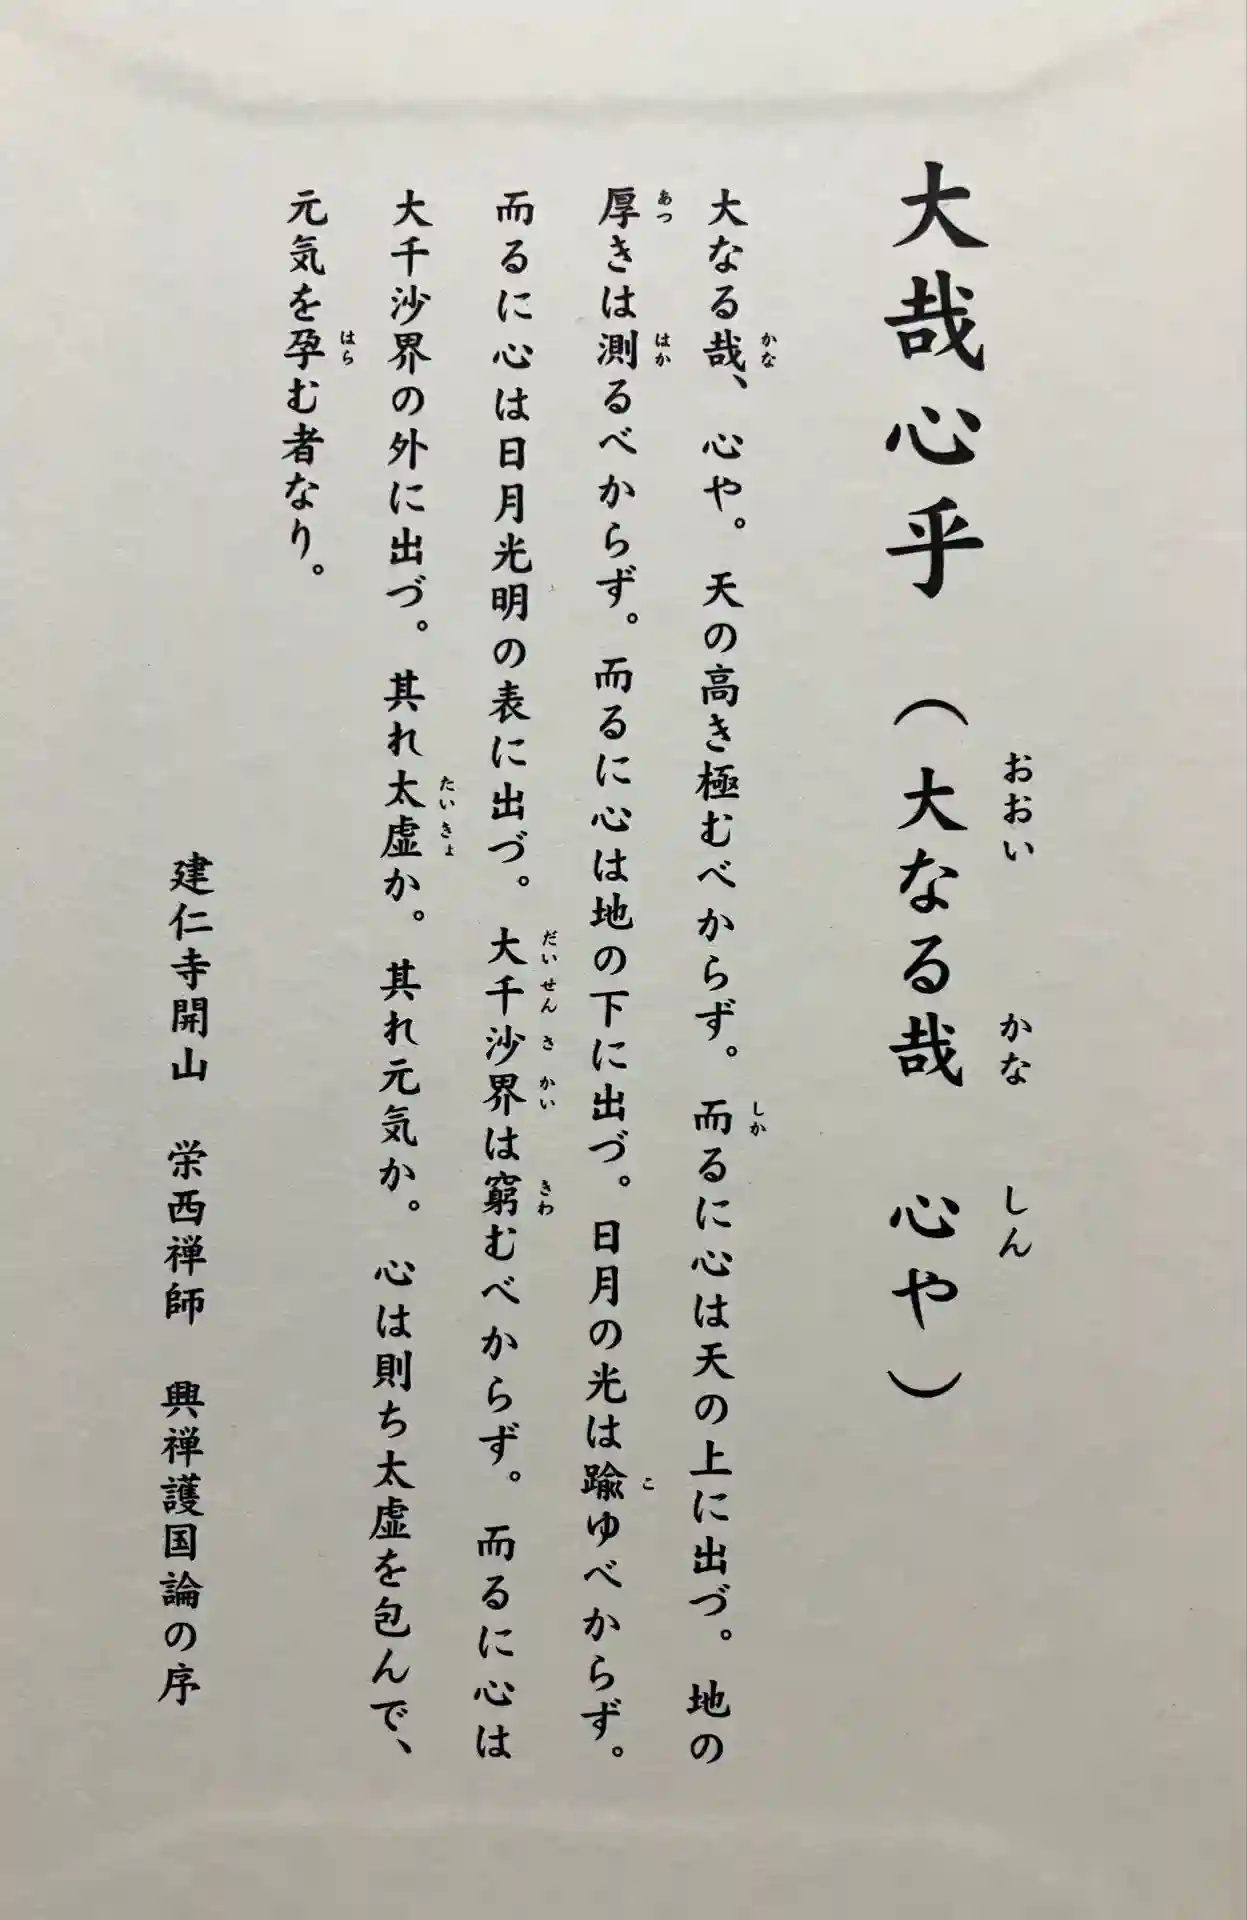 大哉心乎 （大なる哉 心や）
大なる哉、心や。天の高き極むべからず。而るに心は天の上に出づ。地の
厚きは測るべからず。而るに心は地の下に出づ。日月の光は踰ゆべからず。
而るに心は日月光明の表に出づ。大千沙界は窮むべからず。而るに心は
大千沙界の外に出づ。其れ太虚か。其れ元気か。心は則ち太虚を包んで、
元気を孕む者なり。
建仁寺開山 栄西禅師 興禅護国論の序